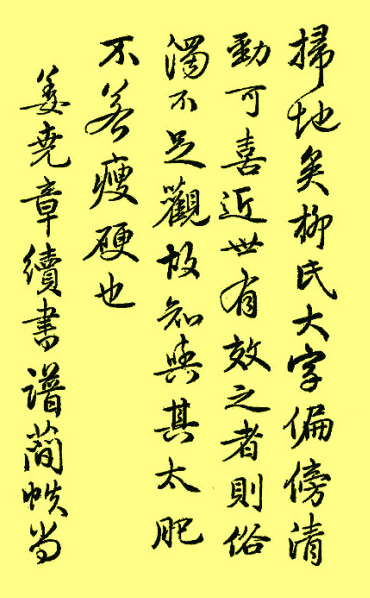 掃地矣柳氏大字偏傍清
勁可喜近世有效之者則俗
濁不足觀故知與其太肥
不若瘦硬也
姜堯章續書譜簡帙